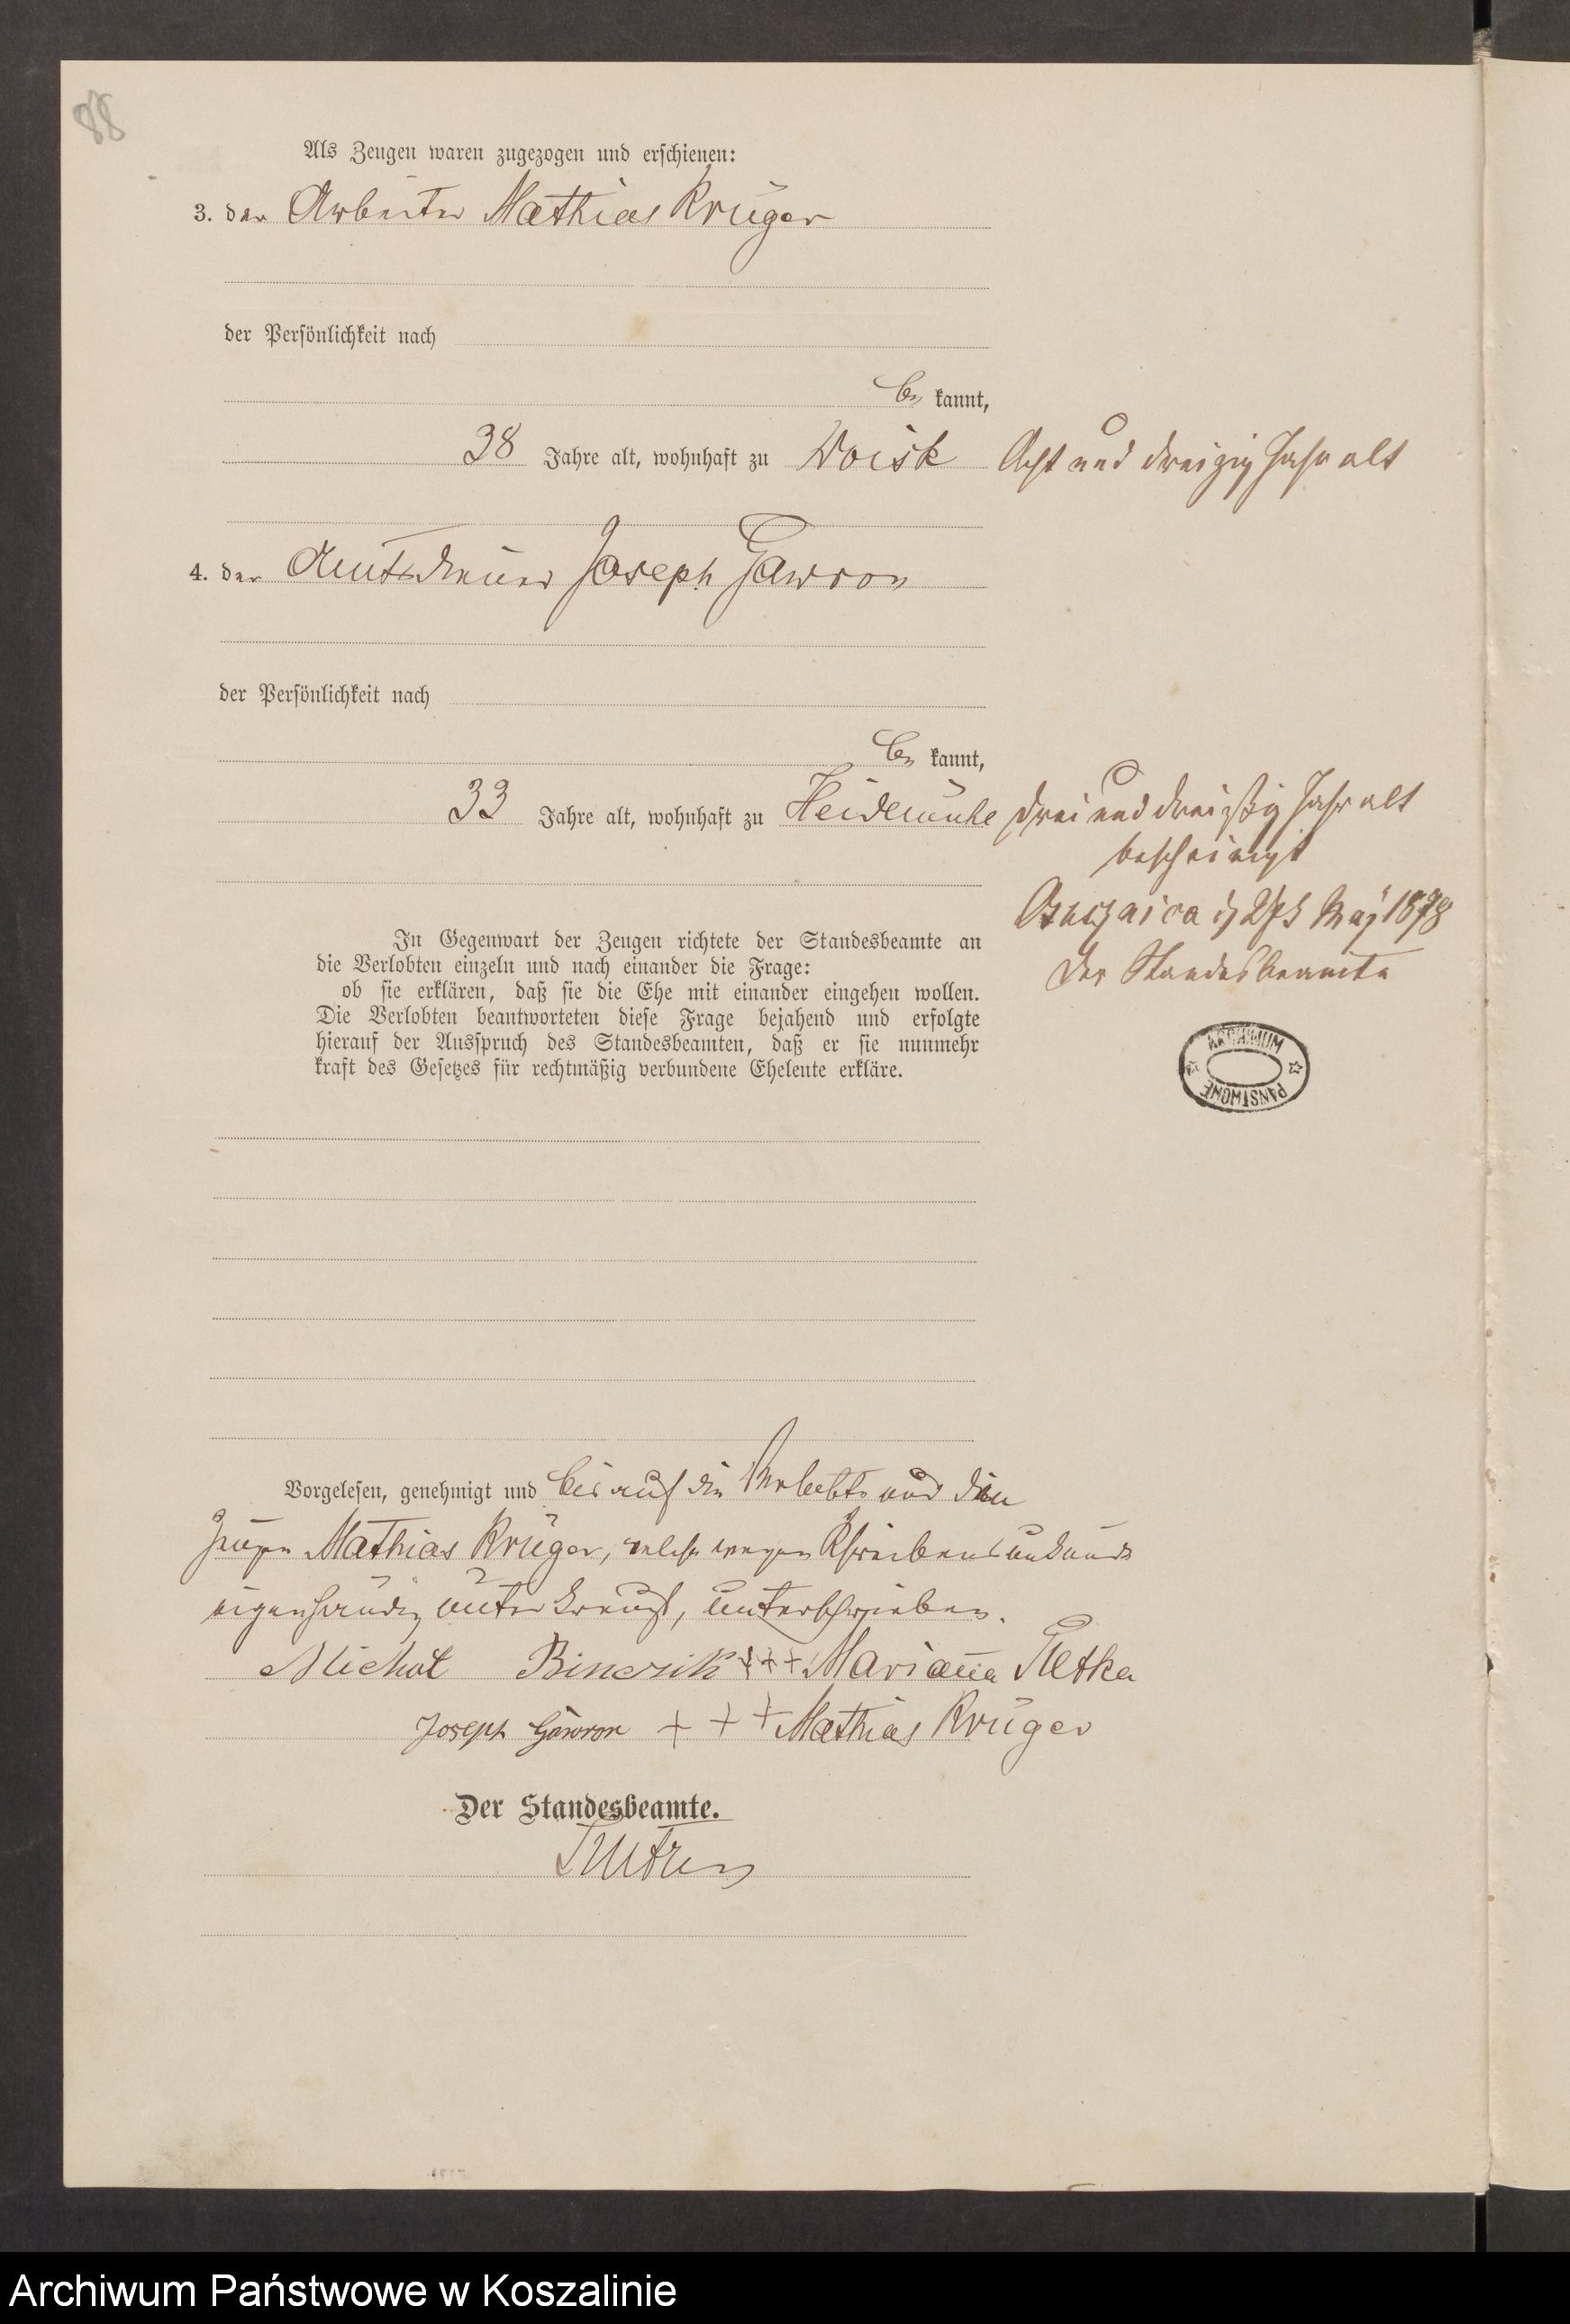 88
Als Zeugen waren zugezogen und erschienen:
3. der Arbeiter Mathias Krüger
der Persönlichkeit nach
be kannt,
38 Jahre alt, wohnhaft zu Woisk Acht und dreizig Jahr alt
4. der Amtsdiener Joseph Gawron
der Persönlichkeit nach
be kannt,
33 Jahre alt, wohnhaft zu Heidemühle drei und dreißig Jahr alt
bescheinigt
May 1878
Der Standesbeamte
In Gegenwart der Zeugen richtete der Standesbeamte an
die Verlobten einzeln und nach einander die Frage:
ob sie erklären, daß sie die Ehe mit einander eingehen wollen.
Die Verlobten beantworteten diese Frage bejahend und erfolgte
hierauf der Ausspruch des Standesbeamten, daß er sie nunmehr
kraft des Gesetzes für rechtmäßig verbundene Eheleute erkläre.
ARCHIWUM
PAŃSTWOWE
Vorgelesen, genehmigt und bis auf die Verlobte und den
Zeugen Mathias Krüger, welche wegen Schreibensunkunde
eigenhändig unterkreuzt, unterschrieben.
Michał Binczik +++ Marianna
Joseph Gawron + + + Mathias Krüger
Der Standesbeamte.
Archiwum Państwowe w Koszalinie